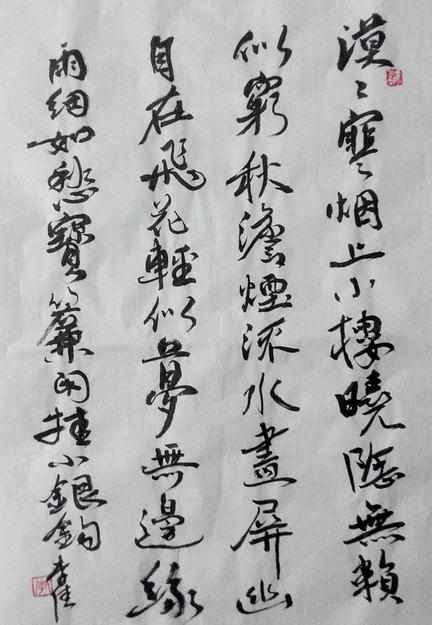 漠〻寒〻烟上小樓曉陰無賴
似窮秋澹煙流水畫屏幽
自在飛花輕似夢無邊
雨細如愁寶簾閑挂小銀鉤